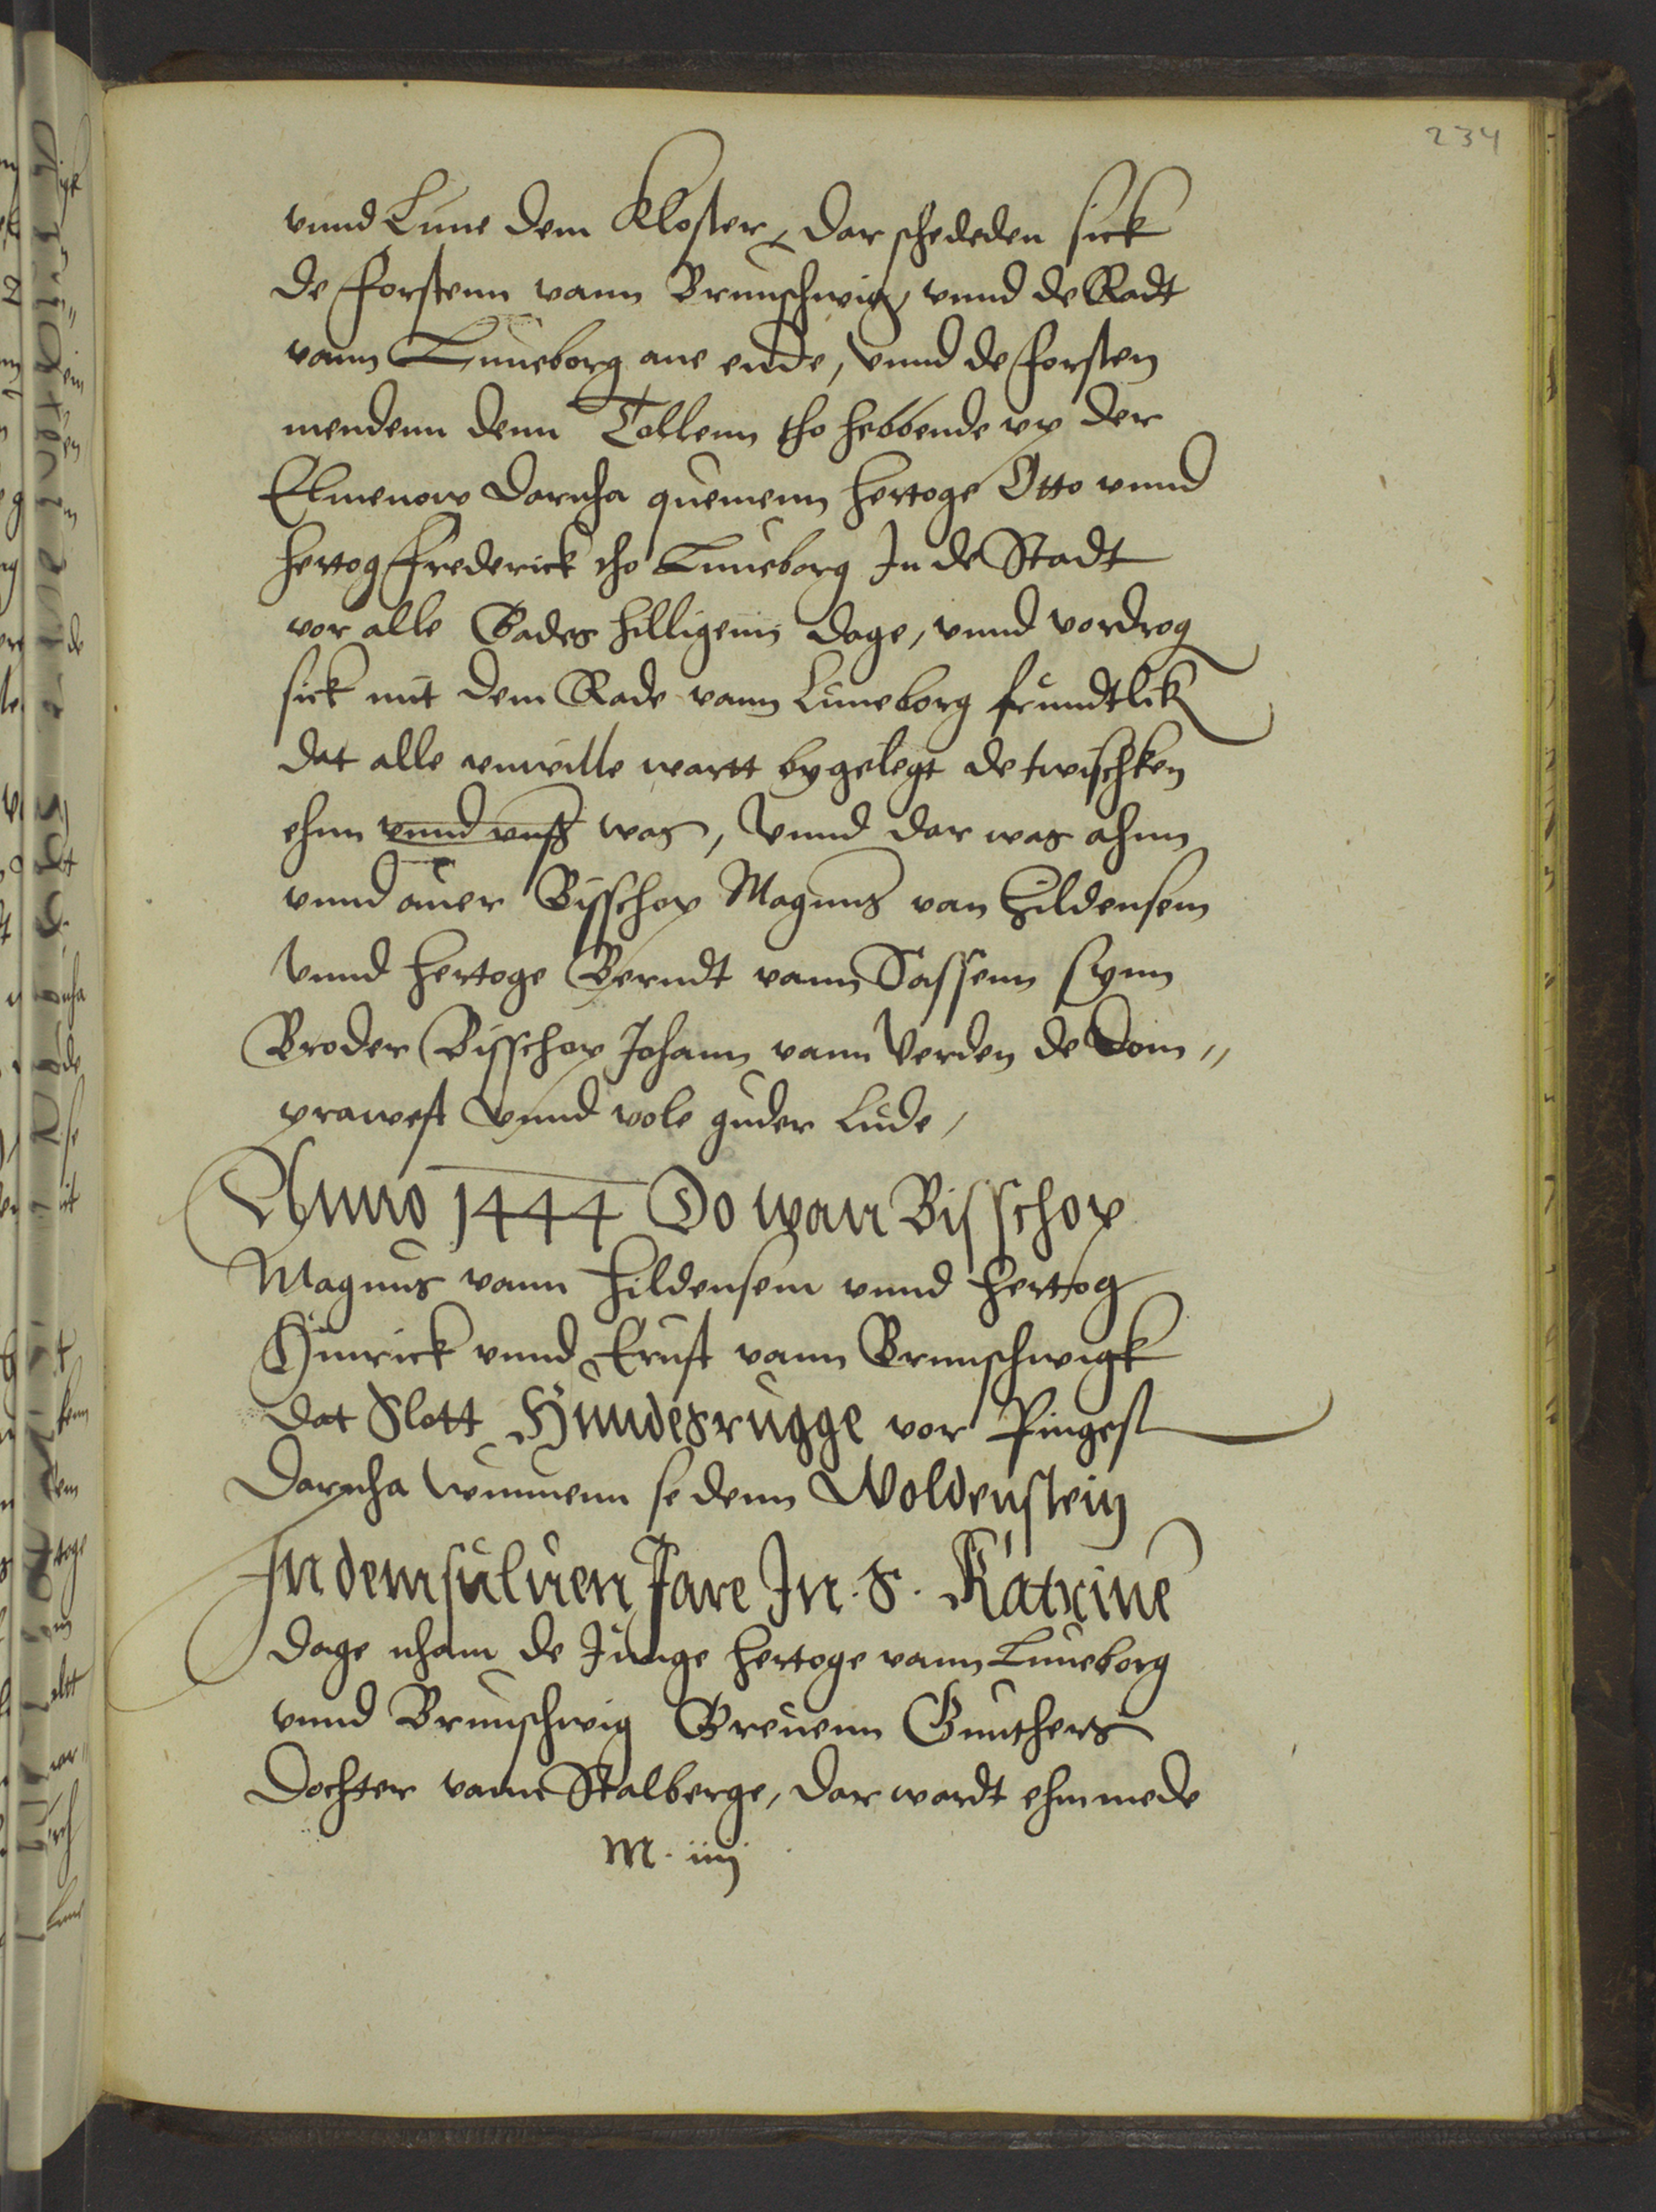 234
vnnd Lune dem Kloster, dar schededen sick
de forstenn vann Brunschwig, vnnd de Radt
vann Luneborg ane ende, Vnnd de forsten
mendenn denn Tollenn tho hebbende vp der
Elmenow darnha quemenn hertoge Otto vnnd
hertog frederick tho Luneborg In de Stadt
vor alle Gades hilligenn dage, vnnd vordrog
sick mit dem Rade vann Luneborg frundtlik
dat alle vnwille wartt bygelegt de twischken
ehnn vnnd vnß was, Vnnd dar was ahnn
vnnd auer Bisschop Magnus van Hildensem
Vnnd hertoge Berndt vann Sassenn synn
Broder Bisschop Johann vann Verden de Dom„
prawest Vnnd vole guder Lude,
Anno 1444 Do wan Bisschop
Magnus vann Hildensem vnnd hertog
Hinrick vnnd Ernst vann Brunschwigk
dat Slott Hundesrugge vor Pingest
darnha wunnenn se denn Woldenstein
In demsuluen Jare In. S. Katrine
dage nham de Junge hertoge vann Luneborg
vnnd Brunschwig Greuenn Gunthers
Dochter vann Stalberge, dar wardt ehm mede
M. iiij